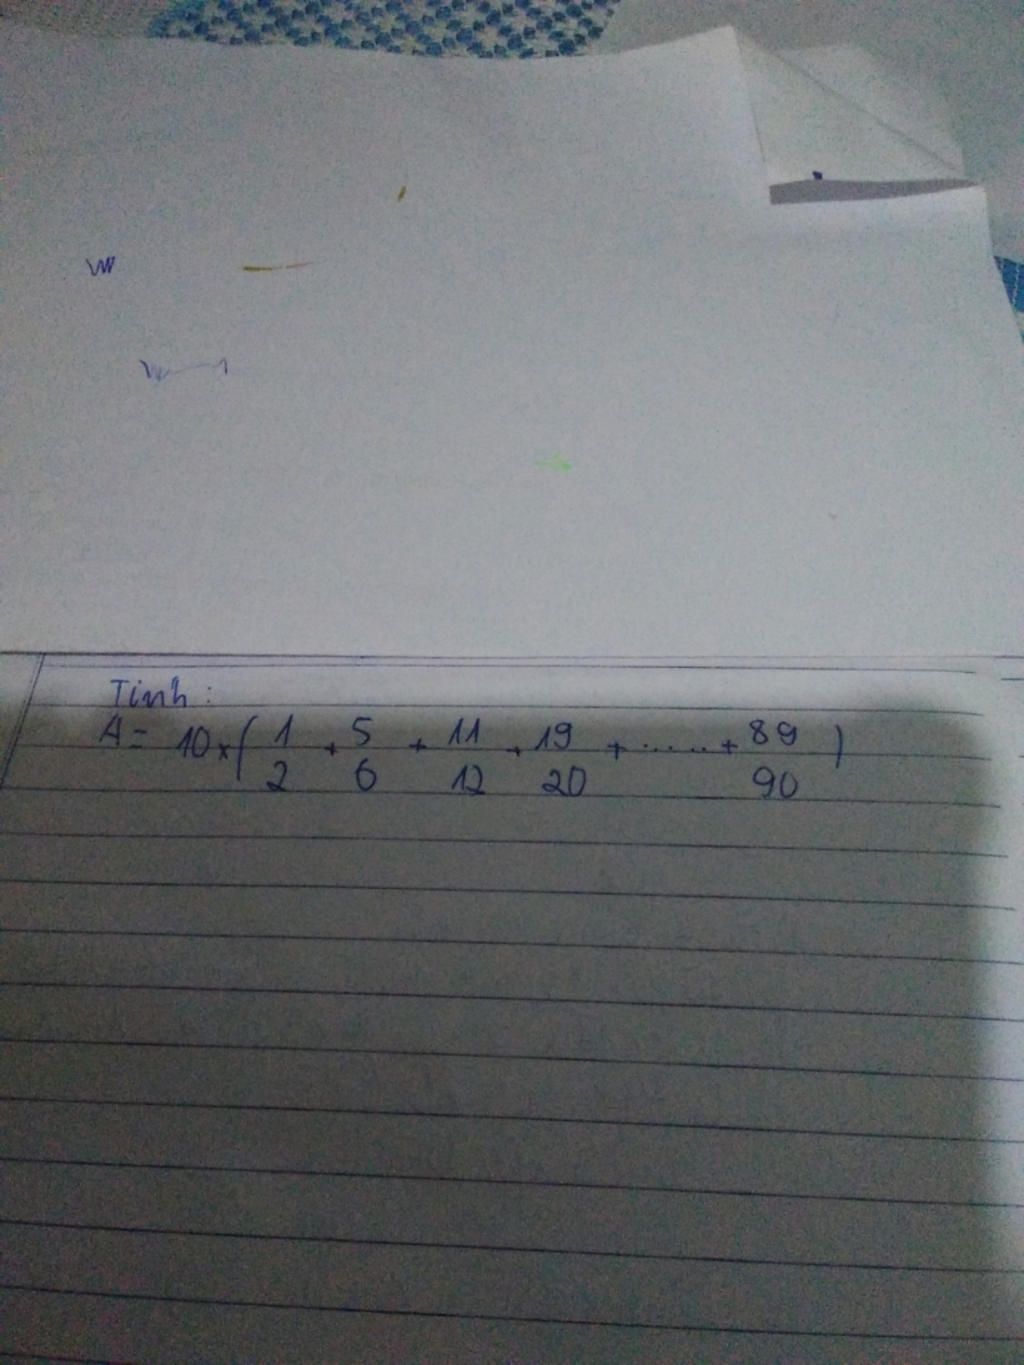 Tính :
A = 10 × ( 1/2 + 5/6 + 11/12 + 19/20 + ...... + 89/90 )